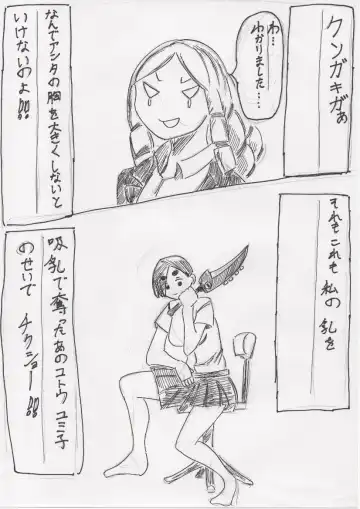 クソガキがぁ
わ…
わかりました……
なんでアンタの胸を大きくしないと
いけないのよ!!
それもこれも私の乳を
吸乳で奪ったあのコトウユミ子
のせいで チクショー!!